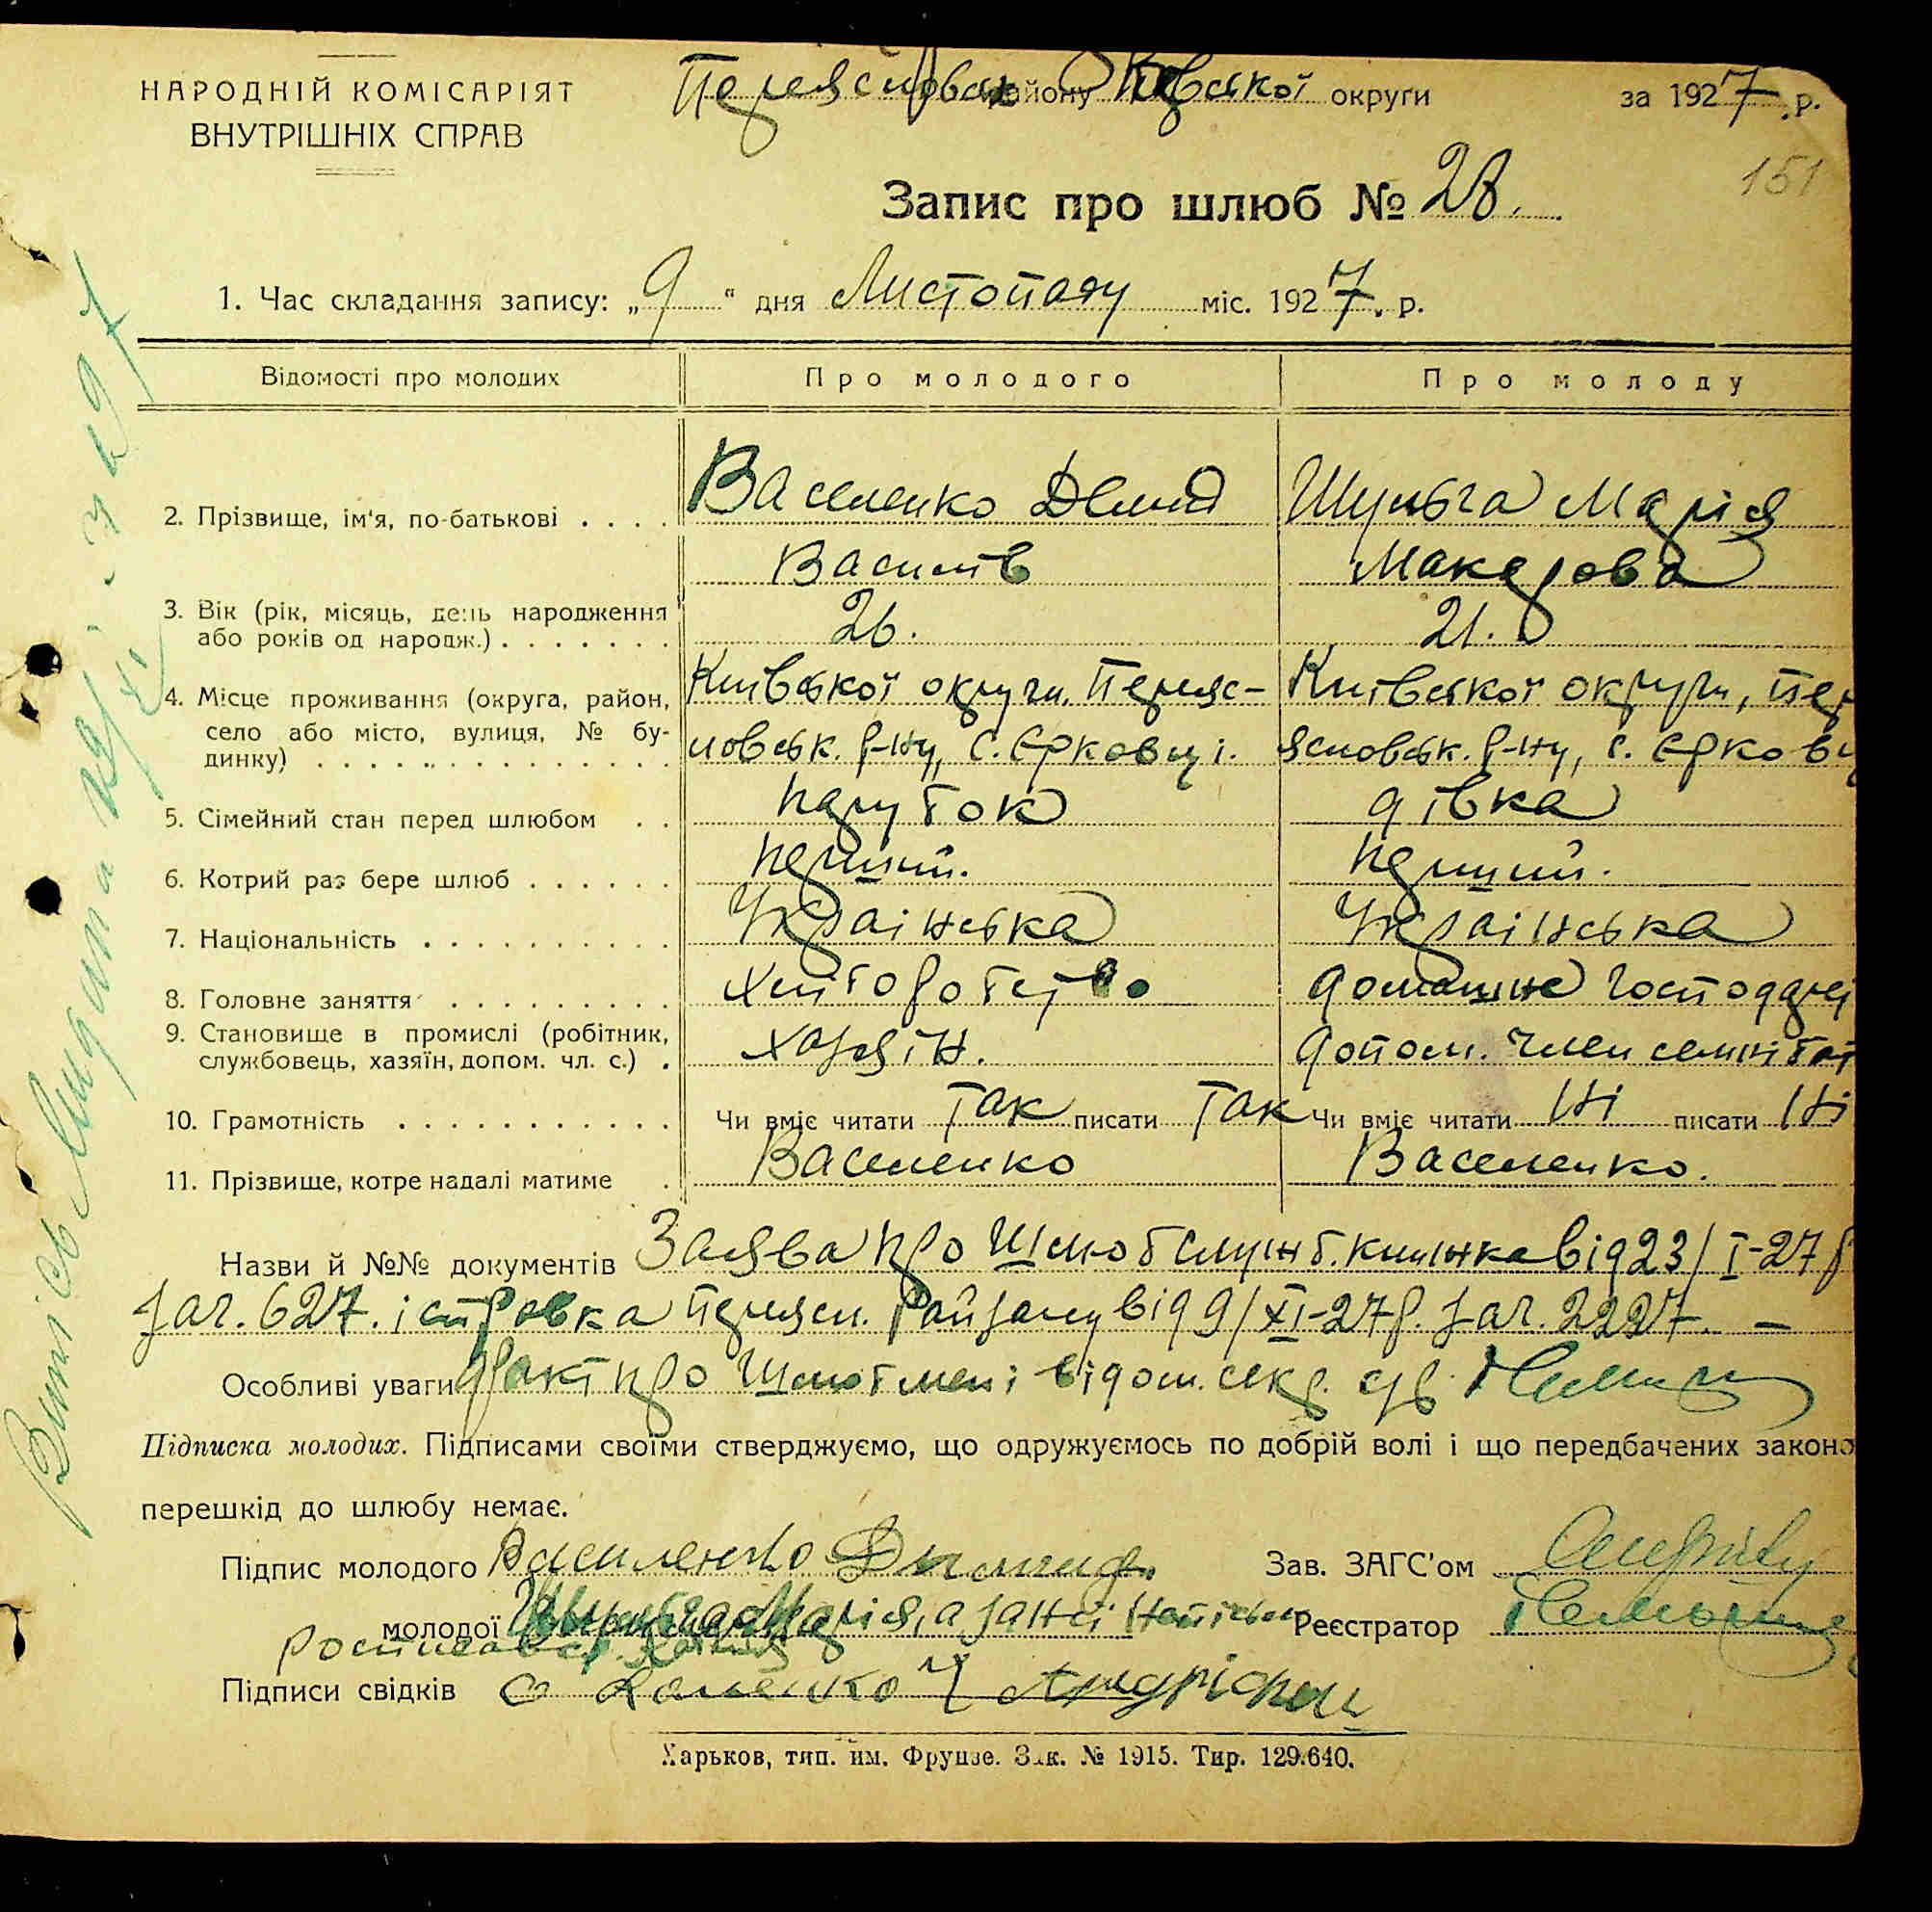 НАРОДНІЙ КОМІСАРІЯТ
ВНУТРІШНІХ СПРАВ
Переяславськ району Київської округи за 1927 р.
151
Запис про шлюб № 28.
1. Час складання запису: „9" дня Листопаду міс. 1927. р.
Відомості про молодих Про молодого Про молоду
2. Прізвище, ім'я, по-батькові . . . . Василенко Демид Шульга Марія
Василів Макарова
3. Вік (рік, місяць, день народження
або років од народж.) . . . . . . . 26. 21.
4. Місце проживання (округа, район, Київської округи, Перeяс- Київської округи, Пер
село або місто, вулиця, № бу- ловськ. р-ну, с. Єрковці. ясловськ. р-ну, с. Єрковц
динку)
5. Сімейний стан перед шлюбом . . парубок дівка
6. Котрий раз бере шлюб . . . . . . перший. перший.
7. Національність . . . . . . . . . . Українська Українська
8. Головне заняття . . . . . . . . . Хліборобство домашнє господар
9. Становище в промислі (робітник,
службовець, хазяїн, допом. чл. с.) . хазяїн. допом. член семьі
10. Грамотність . . . . . . . . . . . Чи вміє читати так писати так Чи вміє читати Ні писати Ні
11. Прізвище, котре надалі матиме . Василенко Василенко.
Назви й №№ документів Заява про шлюб служб. книжка від 23/I-27 р
за ч. 627. і справка Переясл. Райзагсу від 9/XI-27р. за ч. 2227. —
Особливі уваги Факт про шлюб мені відом. секр.
Підписка молодих. Підписами своїми стверджуємо, що одружуємось по добрій волі і що передбачених законо
перешкід до шлюбу немає.
Підпис молодого Василенко Демид Зав. ЗАГС'ом
молодої Шульга Марія, а за неї Реєстратор
Підписи свідків
Харьков, тип. им. Фрунзе. Зак. № 1915. Тир. 129.640.